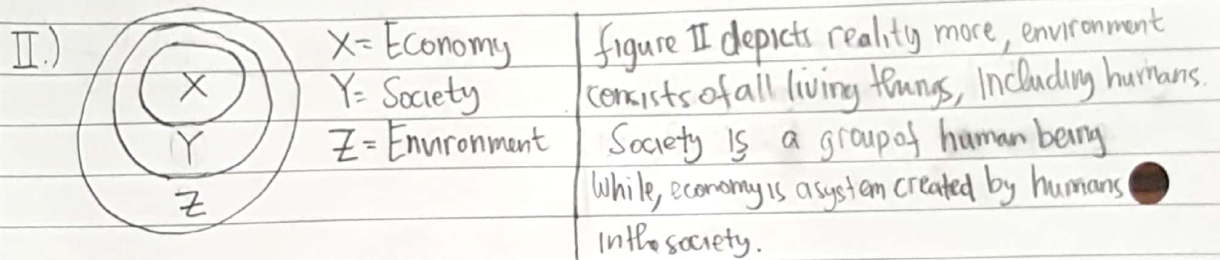 II.)
X
Y
Z
X= Economy
Y= Society
Z= Environment
figure II depicts reality more, environment
consists of all living things, Including humans.
Society Is a group of human being
While, economy is a system created by humans
In the society.